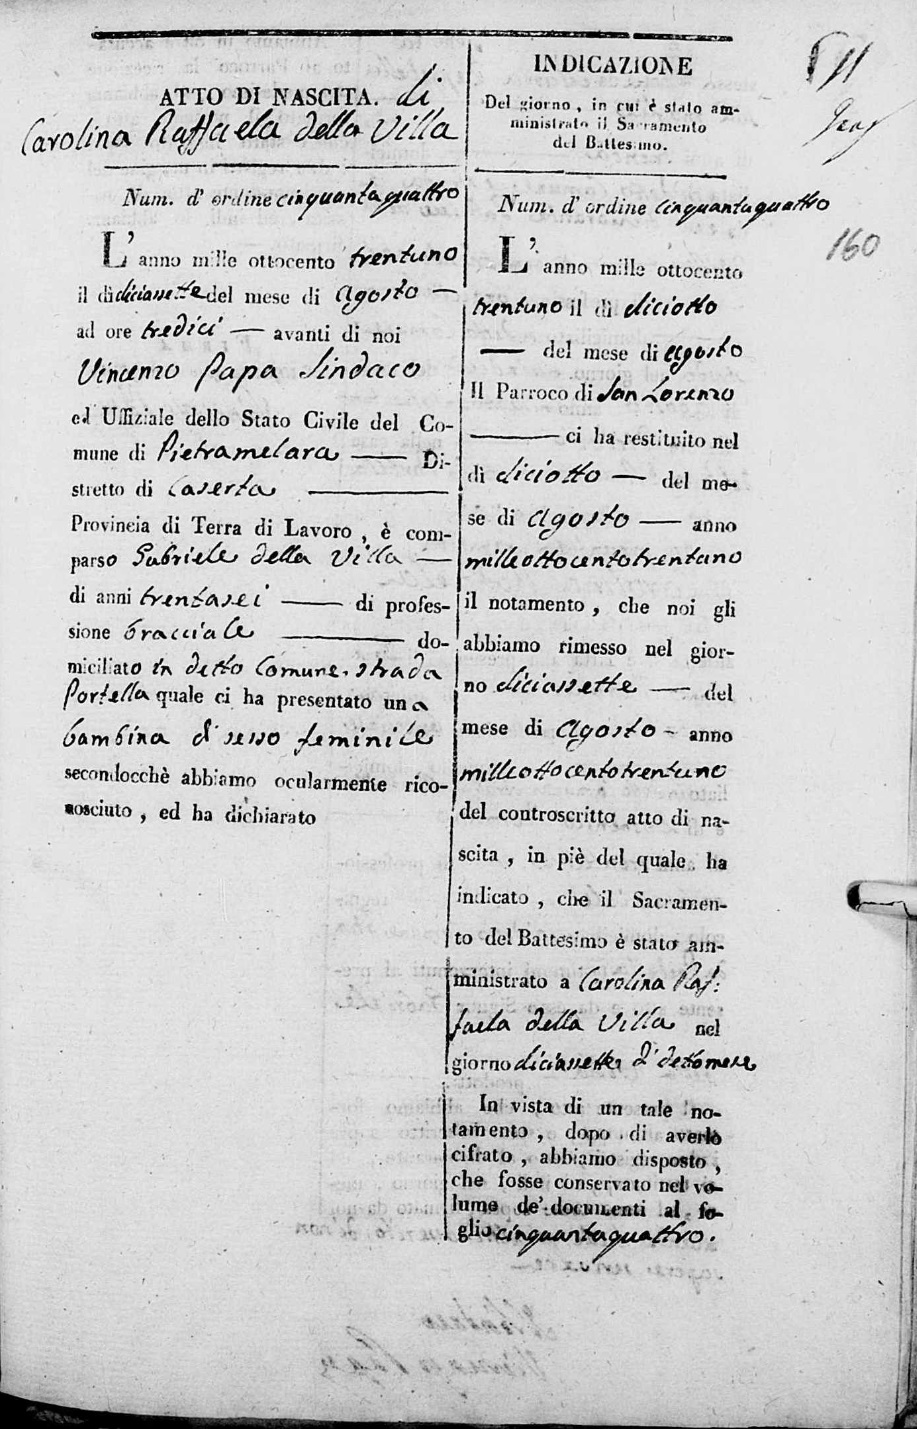 ATTO DI NASCITA. di
Carolina Raffaela della Villa
Num. d' ordine cinquantaquattro
L' anno mille ottocento trentuno
il di diciassette del mese di Agosto —
ad ore tredici — avanti di noi
Vincenzo Papa Sindaco
ed Uffiziale dello Stato Civile del Co-
mune di Pietramelara — Di-
stretto di Caserta —
Provincia di Terra di Lavoro , è com-
parso Gabriele della Villa —
di anni trentasei — di profes-
sione bracciale — do-
miciliato in detto Comune, strada
Portella quale ci ha presentato una
bambina di sesso feminile
secondocchè abbiamo ocularmente rico-
nosciuto , ed ha dichiarato
INDICAZIONE
Del giorno , in cui è stato am-
ministrato il Sacramento
del Battesimo.
Num. d' ordine cinquantaquattro
L' anno mille ottocento
trentuno il di diciotto
— del mese di Agosto
Il Parroco di San Lorenzo
— ci ha restituito nel
di diciotto — del me-
se di Agosto — anno
milleottocentotrentuno
il notamento , che noi gli
abbiamo rimesso nel gior-
no diciassette — del
mese di Agosto - anno
milleottocentotrentuno
del controscritto atto di na-
scita , in piè del quale ha
indicato , che il Sacramen-
to del Battesimo è stato am-
ministrato a Carolina Raf:
faela della Villa nel
giorno diciassette di detto mese
In vista di un tale no-
tamento , dopo di averlo
cifrato , abbiamo disposto ,
che fosse conservato nel vo-
lume de' documenti al fo-
glio cinquantaquattro.
160